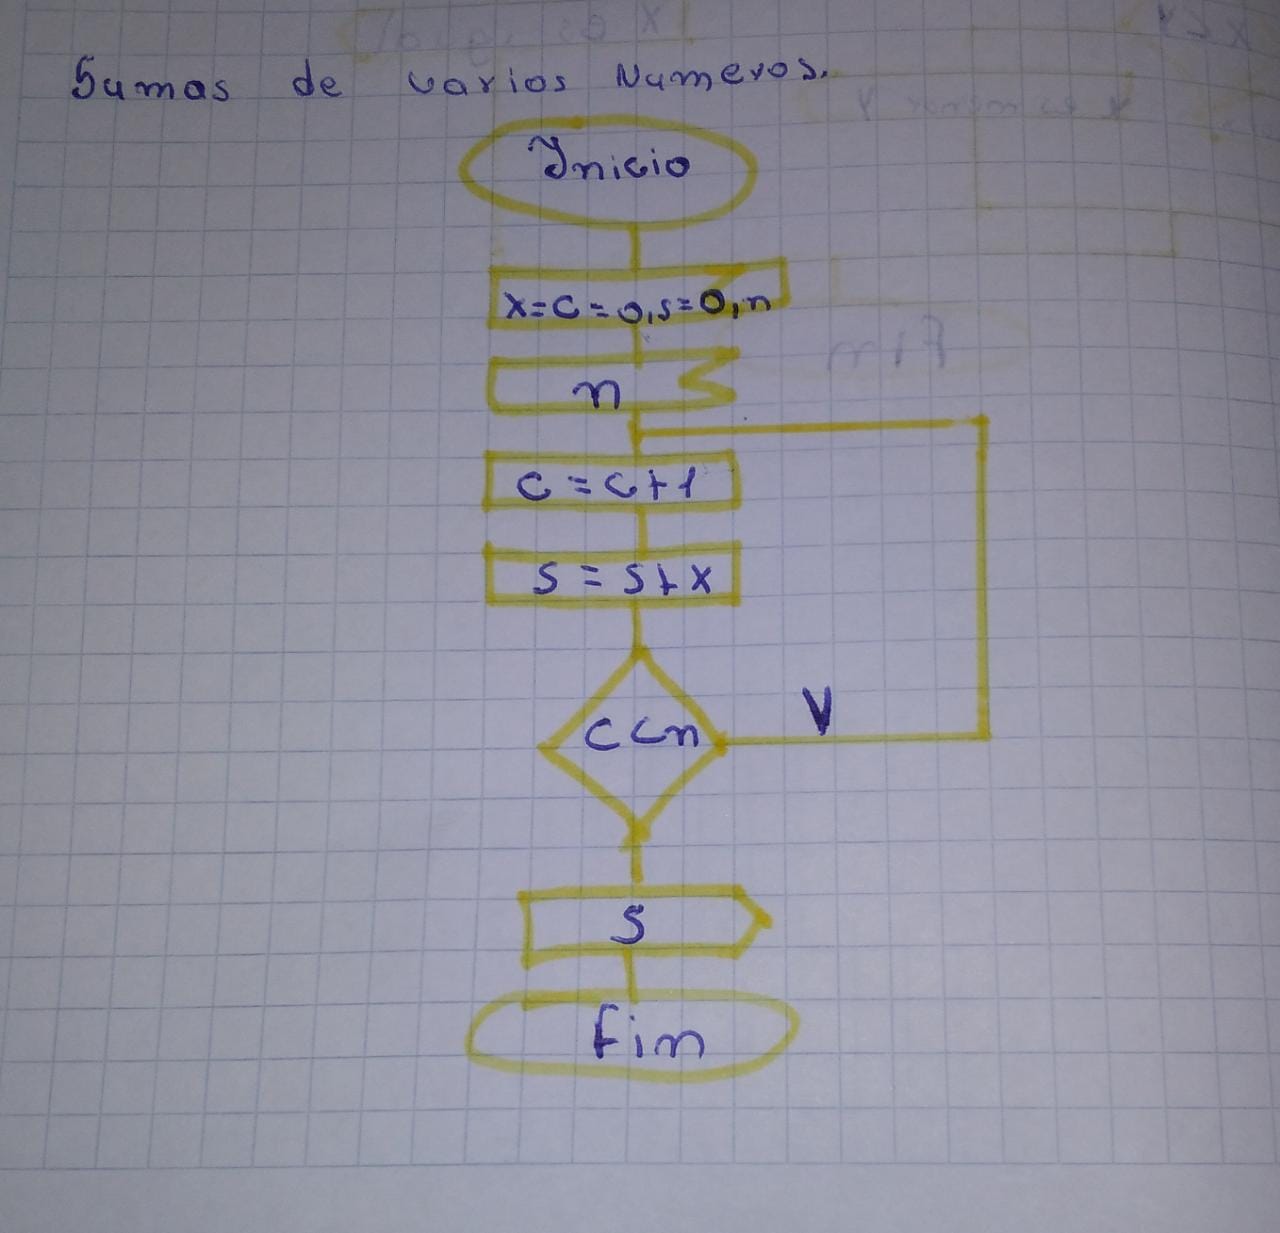 Sumas de varios Numeros.
Inicio
x=c=0,s=0,n
n
c=c+1
s=s+x
c<n
V
s
fin